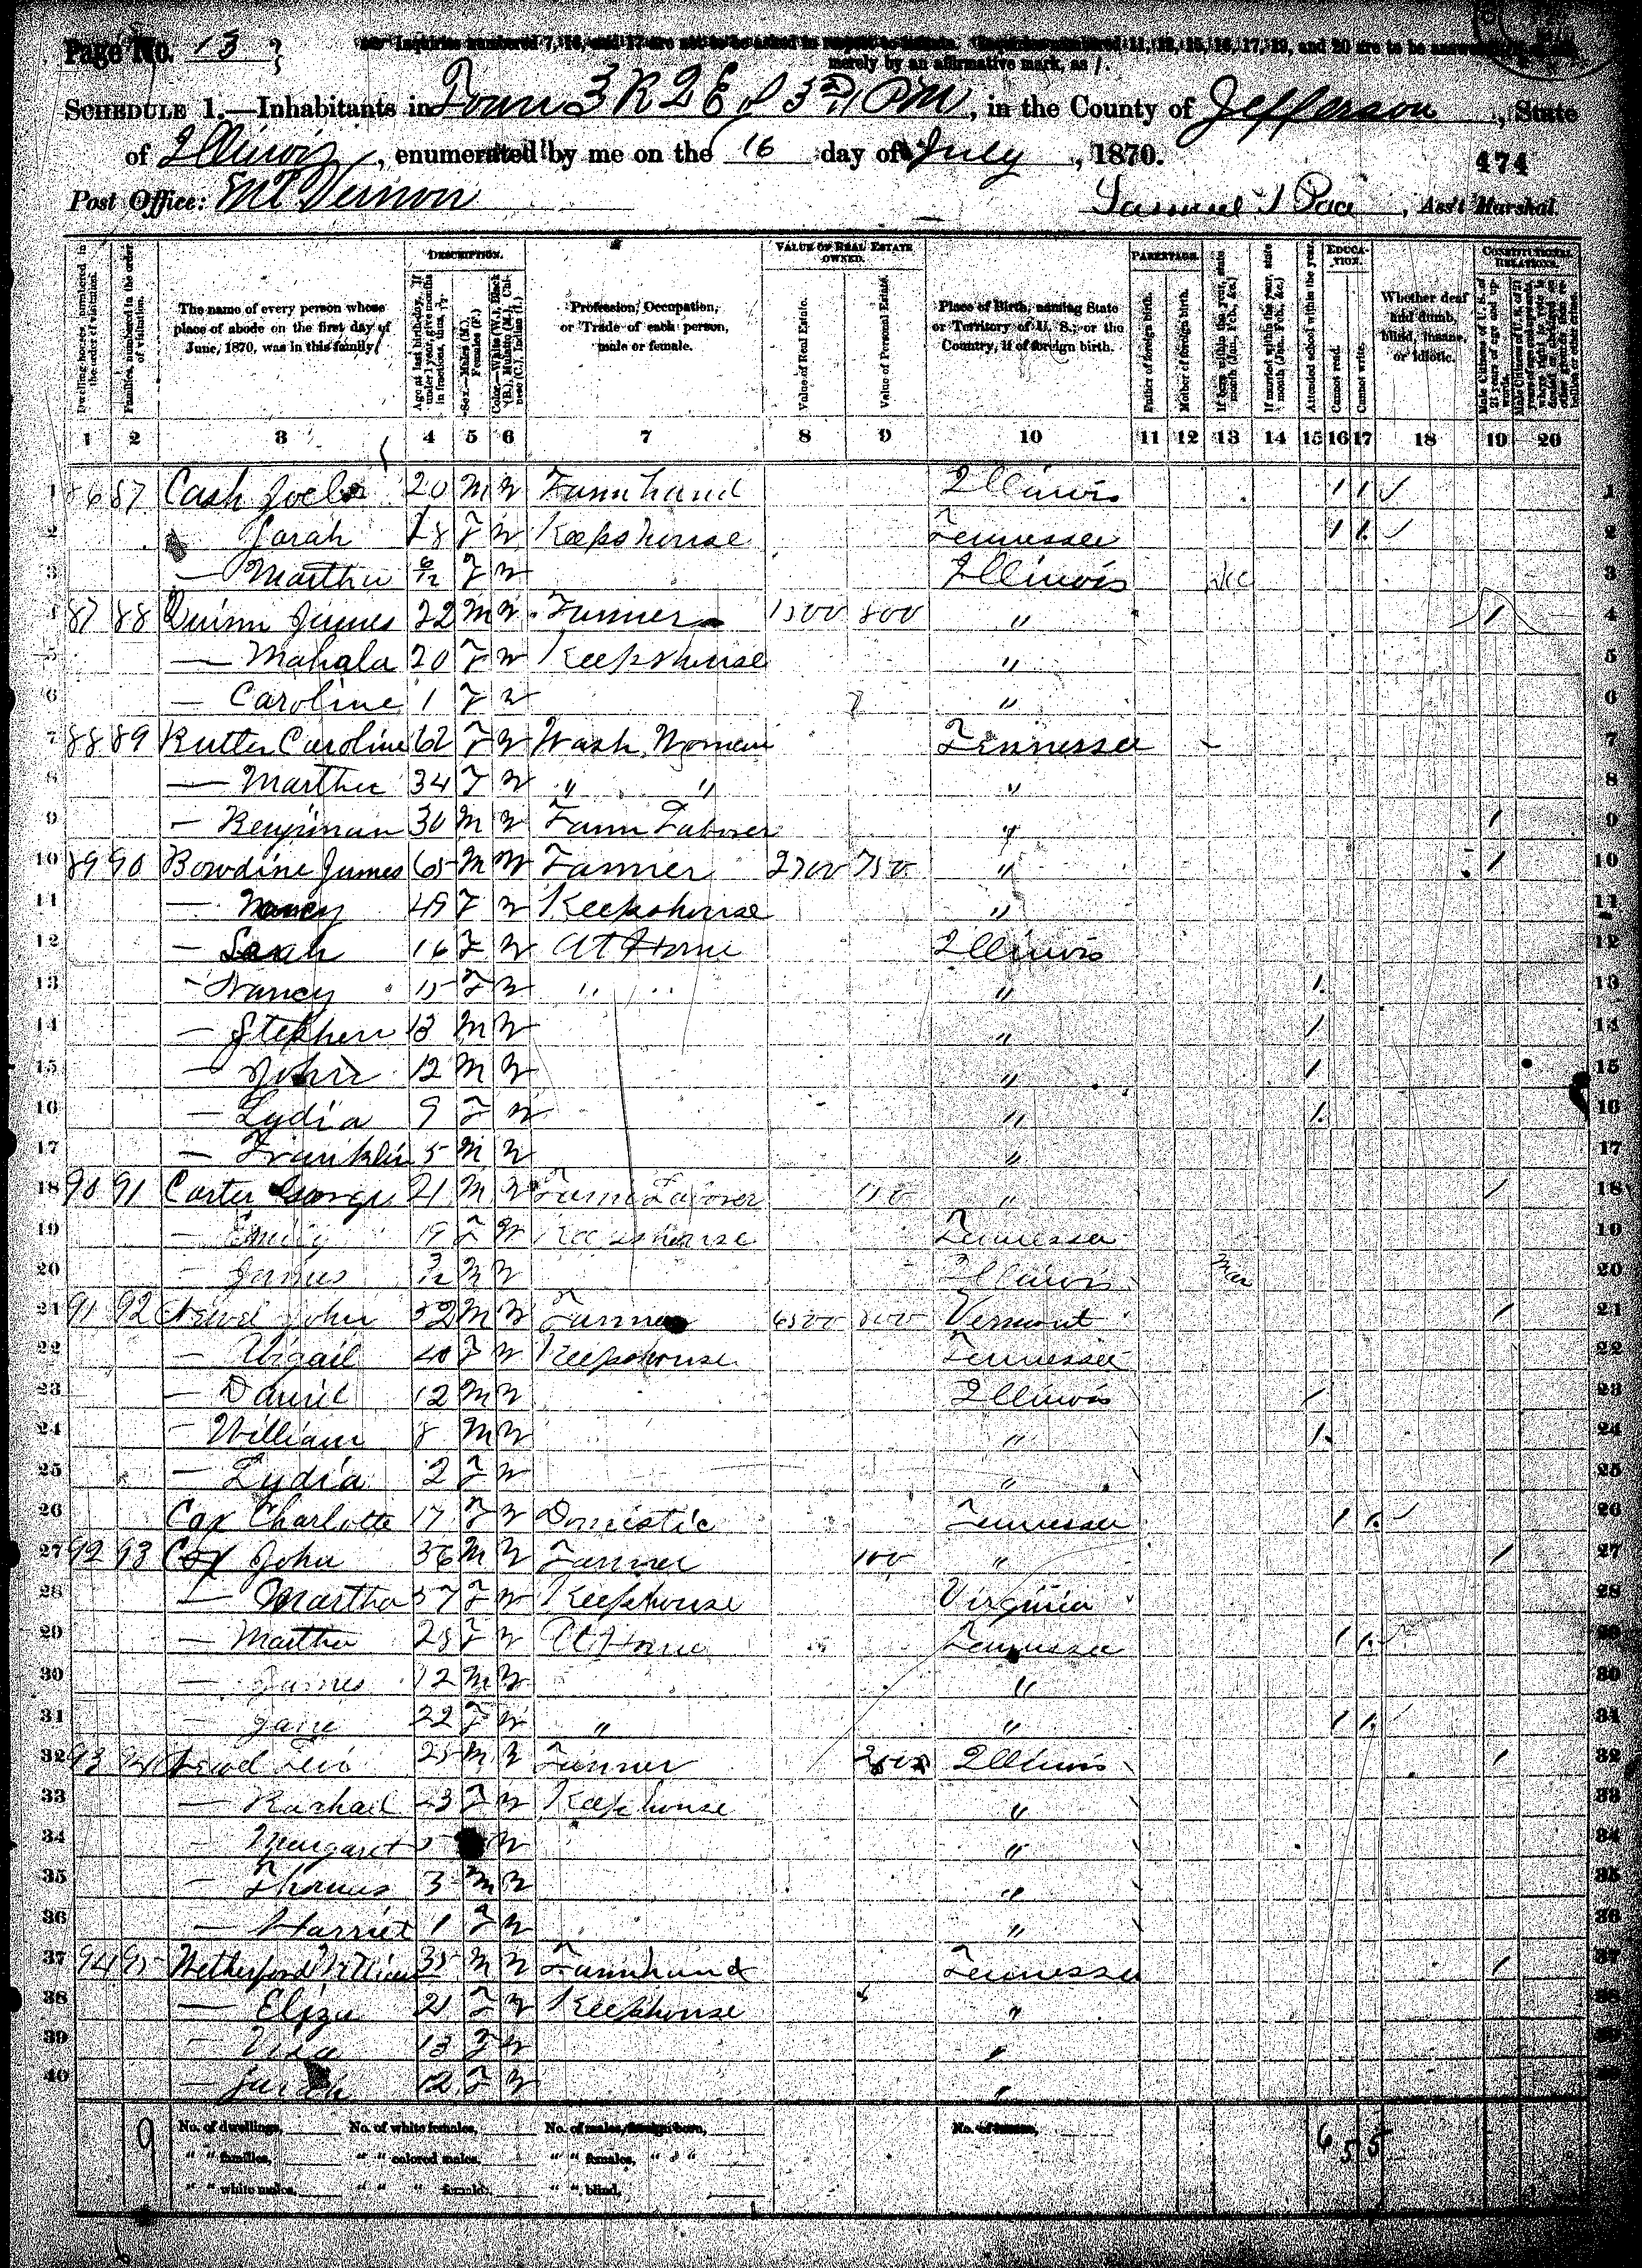 Page No. 13
Inquiries numbered 7, 16, and 17 are not to be asked in respect to infants. Inquiries numbered 11, 12, 15, 16, 17, 19, and 20 are to be answered
merely by an affirmative mark, as /.
SCHEDULE 1.—Inhabitants in Town 3 R 2 E of 3rd PM, in the County of Jefferson, State
of Illinois, enumerated by me on the 16 day of July, 1870.
474
Post Office: Mt Vernon
Samuel T Pace, Ass't Marshal.
Dwelling-houses, numbered in the order of visitation.
Families, numbered in the order of visitation.
The name of every person whose place of abode on the first day of June, 1870, was in this family.
DESCRIPTION.
Age at last birth-day. If under 1 year, give months in fractions, thus, 3/12.
Sex.—Males (M.) Females (F.)
Color.—White (W.), Black (B.), Mulatto (M.), Chinese (C.), Indian (I.)
Profession, Occupation, or Trade of each person, male or female.
VALUE OF REAL ESTATE OWNED.
Value of Real Estate.
Value of Personal Estate.
Place of Birth, naming State or Territory of U. S.; or the Country, if of foreign birth.
PARENTAGE.
Father of foreign birth.
Mother of foreign birth.
If born within the year, state month (Jan., Feb., &c.)
If married within the year, state month (Jan., Feb., &c.)
Attended school within the year.
EDUCATION.
Cannot read.
Cannot write.
Whether deaf and dumb, blind, insane, or idiotic.
CONSTITUTIONAL RELATIONS.
Male Citizens of U. S. of 21 years of age and upwards.
1 2 3 4 5 6 7 8 9 10 11 12 13 14 15 16 17 18 19 20
1 86 87 Cash Joel 20 M W Farmhand Illinois / / ✓ 1
2 — Sarah 18 F W Keeps house Tennessee / / ✓ 2
3 — Martha 6/12 F W Illinois Dec 3
4 87 88 Quinn James 22 M W Farmer 1500 800 " / 4
5 — Mahala 20 F W Keeps house " 5
6 — Caroline 1 F W " 6
7 88 89 Rutter Caroline 62 F W Wash Woman Tennessee 7
8 — Martha 34 F W " " " 8
9 — Benjiman 30 M W Farm Laborer " / 9
10 89 90 Bowdine James 65 M W Farmer 2700 750 " / 10
11 — Nancy 49 F W Keeps house " 11
12 — Sarah 16 F W At Home Illinois 12
13 — Nancy 15 F W " " " / 13
14 — Stephen 13 M W " / 14
15 — John 12 M W " / 15
16 — Lydia 9 F W " / 16
17 — Franklin 5 M W " 17
18 90 91 Carter George 21 M W Farm Laborer " / 18
19 — Emily 19 F W Keeps house Tennessee 19
20 — James 3/12 M W Illinois Mar 20
21 91 92 John 52 M W Farmer 6500 800 Vermont / 21
22 — Abigail 40 F W Keeps house Tennessee 22
23 — Daniel 12 M W Illinois / 23
24 — William 8 M W " / 24
25 — Lydia 2 F W " 25
26 Cox Charlotte 17 F W Domestic Tennessee / / ✓ 26
27 92 93 Cox John 36 M W Farmer 100 " / 27
28 — Martha 57 F W Keeps house Virginia 28
29 — Martha 28 F W At Home Tennessee / / 29
30 — James 12 M W " 30
31 — Jane 22 F W " " / / 31
32 93 94 25 M W Farmer Illinois / 32
33 — Rachail 23 F W Keeps house " 33
34 — Margaret 5 W " 34
35 — Thomas 3 M W " 35
36 — Harriet 1 F W " 36
37 94 95 Wetherford William 35 M W Farmhand Tennessee / 37
38 — Eliza 21 F W Keeps house " 38
39 — 13 F W " 39
40 — Sarah 12 F W " 40
9
No. of dwellings, No. of white females, No. of males, foreign born, No. of insane,
" " families, " " colored males, " " females, " "
" " white males, " " " females, " " blind,
6 5 5